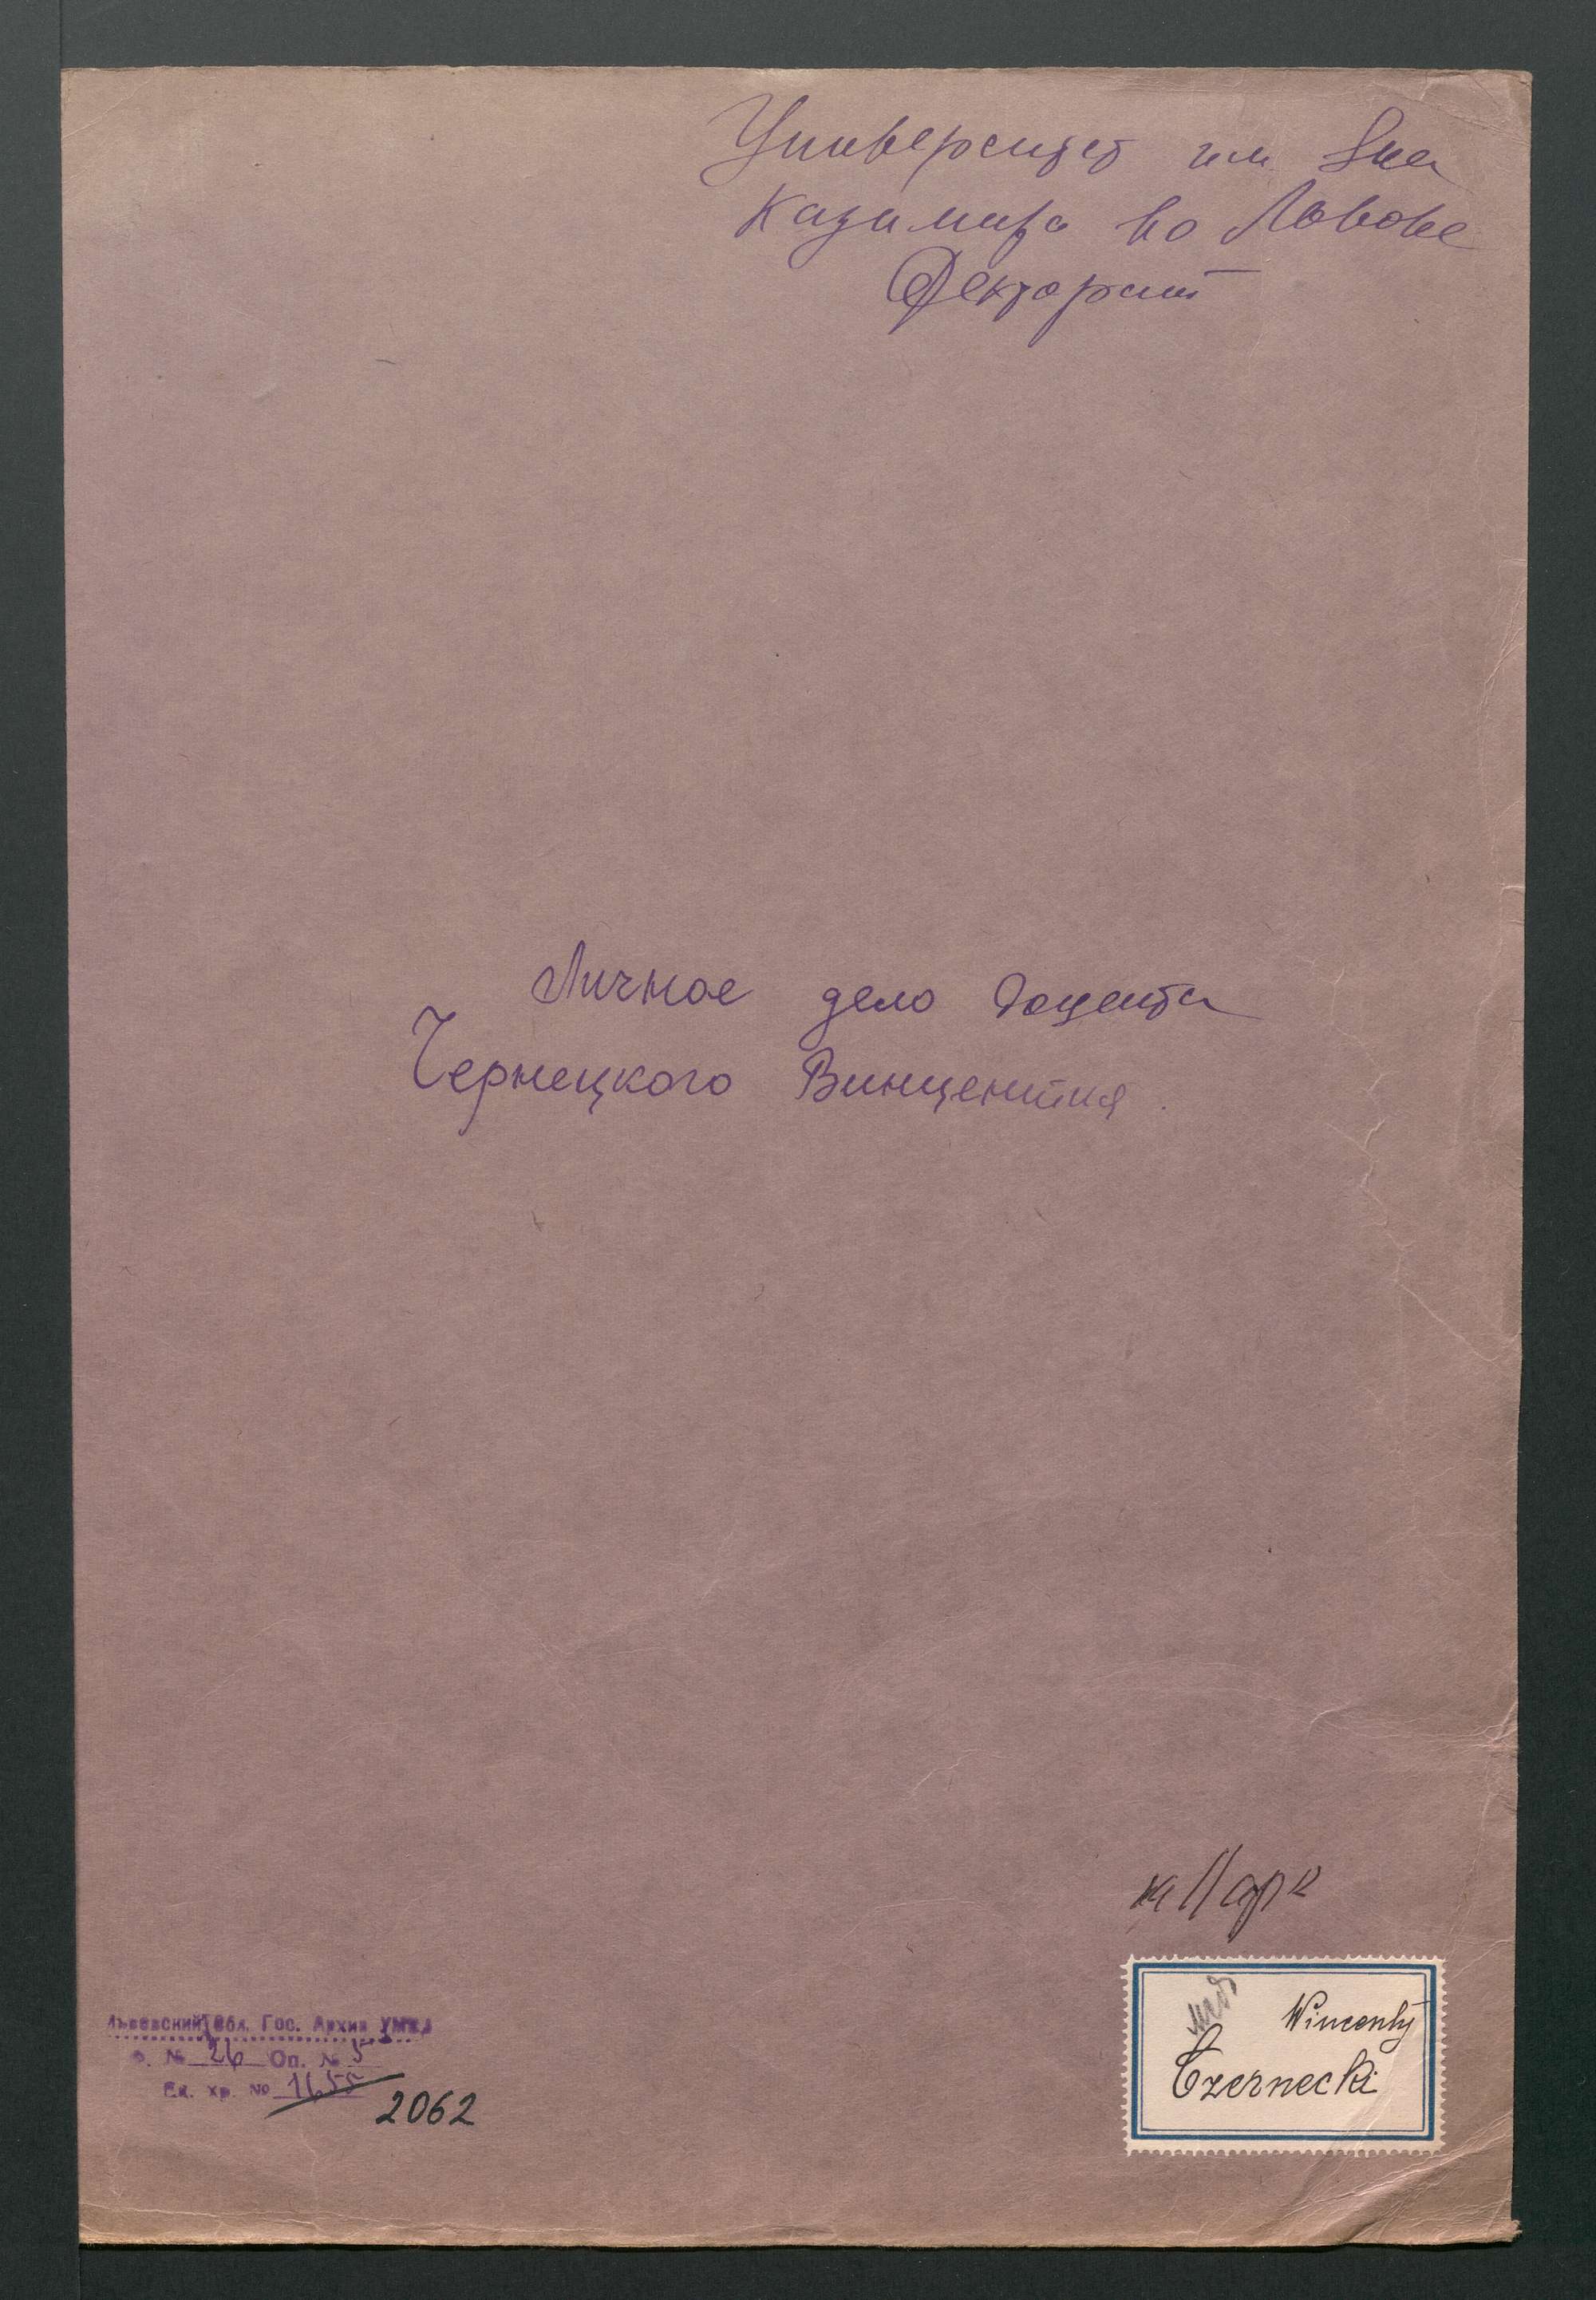 Университет им Яна
Казимира во Львове
Ректорат
Личное дело доцента
Чернецкого Винцентия.
Львовский Обл. Гос. Архив УМВД
Ф. № 26 Оп. № 5
Ед. хр. № 1655
2062
Wincenty
Czernecki